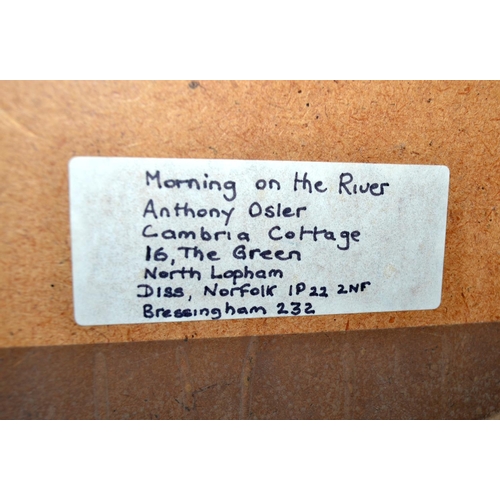 Morning on the River
Anthony Osler
Cambria Cottage
16, The Green
North Lopham
Diss, Norfolk IP22 2NF
Bressingham 232